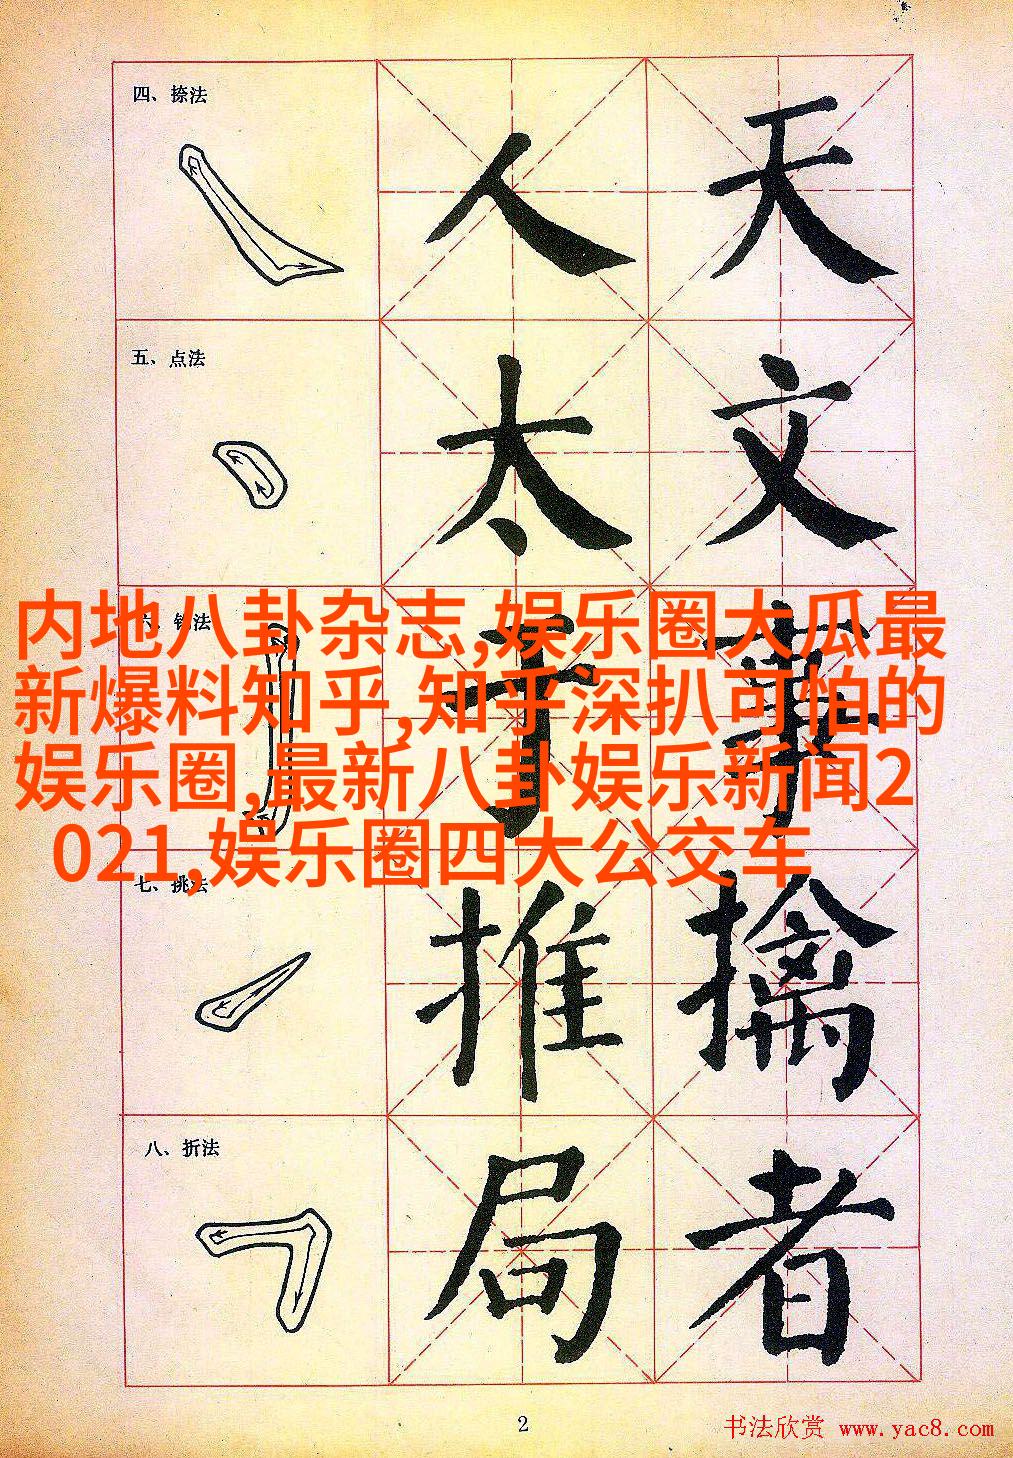 四、捺法
人 天
五、点法
太 文
六、钩法
于 事
内地八卦杂志,娱乐圈大瓜最
新爆料知乎,知乎深扒可怕的
娱乐圈,最新八卦娱乐新闻2
021,娱乐圈四大公交车
七、挑法
推 擒
八、折法
局 者
2
书法欣赏 www.yac8.com